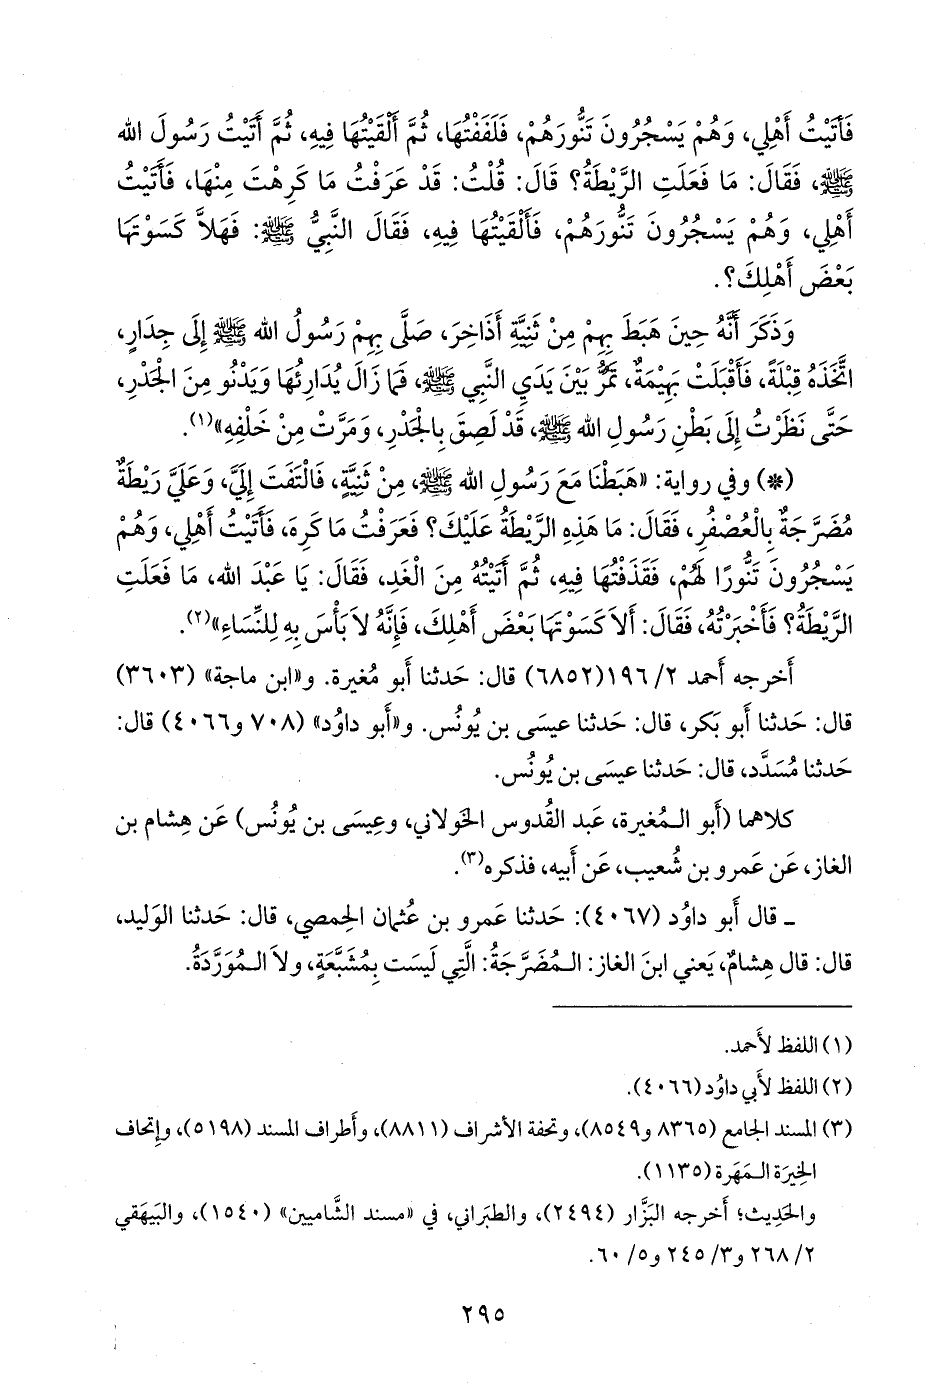 فَأَتَيْتُ أَهْلِي، وَهُمْ يَسْجُرُونَ تَنُّورَهُمْ، فَلَفَفْتُهَا، ثُمَّ أَلْقَيْتُهَا فِيهِ، ثُمَّ أَتَيْتُ رَسُولَ الله
ﷺ، فَقَالَ: مَا فَعَلَتِ الرَّيْطَةُ؟ قَالَ: قُلْتُ: قَدْ عَرَفْتُ مَا كَرِهْتَ مِنْهَا، فَأَتَيْتُ
أَهْلِي، وَهُمْ يَسْجُرُونَ تَنُّورَهُمْ، فَأَلْقَيْتُهَا فِيهِ، فَقَالَ النَّبِيُّ ﷺ: فَهَلاَّ كَسَوْتَهَا
بَعْضَ أَهْلِكَ؟.
وَذَكَرَ أَنَّهُ حِينَ هَبَطَ بِهِمْ مِنْ ثَنِيَّةِ أَذَاخِرَ، صَلَّى بِهِمْ رَسُولُ الله ﷺ إِلَى جِدَارٍ،
اتَّخَذَهُ قِبْلَةً، فَأَقْبَلَتْ بَهِيمَةٌ، تَمُرُّ بَيْنَ يَدَيِ النَّبِي ﷺ، فَمَا زَالَ يُدَارِئُهَا وَيَدْنُو مِنَ الْجَدْرِ،
حَتَّى نَظَرْتُ إِلَى بَطْنِ رَسُولِ الله ﷺ، قَدْ لَصِقَ بِالْجَدْرِ، وَمَرَّتْ مِنْ خَلْفِهِ»(١).
(*) وفي رواية: «هَبَطْنَا مَعَ رَسُولِ الله ﷺ، مِنْ ثَنِيَّةٍ، فَالْتَفَتَ إِلَيَّ، وَعَلَيَّ رَيْطَةٌ
مُضَرَّجَةٌ بِالْعُصْفُرِ، فَقَالَ: مَا هَذِهِ الرَّيْطَةُ عَلَيْكَ؟ فَعَرَفْتُ مَا كَرِهَ، فَأَتَيْتُ أَهْلِي، وَهُمْ
يَسْجُرُونَ تَنُّورًا لَهُمْ، فَقَذَفْتُهَا فِيهِ، ثُمَّ أَتَيْتُهُ مِنَ الْغَدِ، فَقَالَ: يَا عَبْدَ الله، مَا فَعَلَتِ
الرَّيْطَةُ؟ فَأَخْبَرْتُهُ، فَقَالَ: أَلاَ كَسَوْتَهَا بَعْضَ أَهْلِكَ، فَإِنَّهُ لاَ بَأْسَ بِهِ لِلنِّسَاءِ»(٢).
أَخرجه أَحمد ٢/ ١٩٦(٦٨٥٢) قال: حَدثنا أَبو مُغيرة. و«ابن ماجة» (٣٦٠٣)
قال: حَدثنا أَبو بَكر، قال: حَدثنا عيسَى بن يُونُس. و«أَبو داوُد» (٧٠٨ و٤٠٦٦) قال:
حَدثنا مُسَدَّد، قال: حَدثنا عيسَى بن يُونُس.
كلاهما (أَبو الـمُغيرة، عَبد القُدوس الخَولاني، وعِيسَى بن يُونُس) عَن هِشام بن
الغاز، عَن عَمرو بن شُعيب، عَن أَبيه، فذكره(٣).
ـ قال أَبو داوُد (٤٠٦٧): حَدثنا عَمرو بن عُثمان الحِمصي، قال: حَدثنا الوَليد،
قال: قال هِشامٌ، يَعني ابنَ الغاز: الـمُضَرَّجَةُ: الَّتِي لَيسَت بِمُشَبَّعَةٍ، ولاَ الـمُوَرَّدَةُ.
(١) اللفظ لأَحمد.
(٢) اللفظ لأَبي داوُد (٤٠٦٦).
(٣) المسند الجامع (٨٣٦٥ و٨٥٤٩)، وتحفة الأشراف (٨٨١١)، وأَطراف المسند (٥١٩٨)، وإتحاف
الخِيرَة الـمَهَرة (١١٣٥).
والحَدِيث؛ أَخرجه البَزَّار (٢٤٩٤)، والطبَراني، في «مسند الشَّاميين» (١٥٤٠)، والبَيهَقي
٢/ ٢٦٨ و٣/ ٢٤٥ و٥/ ٦٠.
٢٩٥